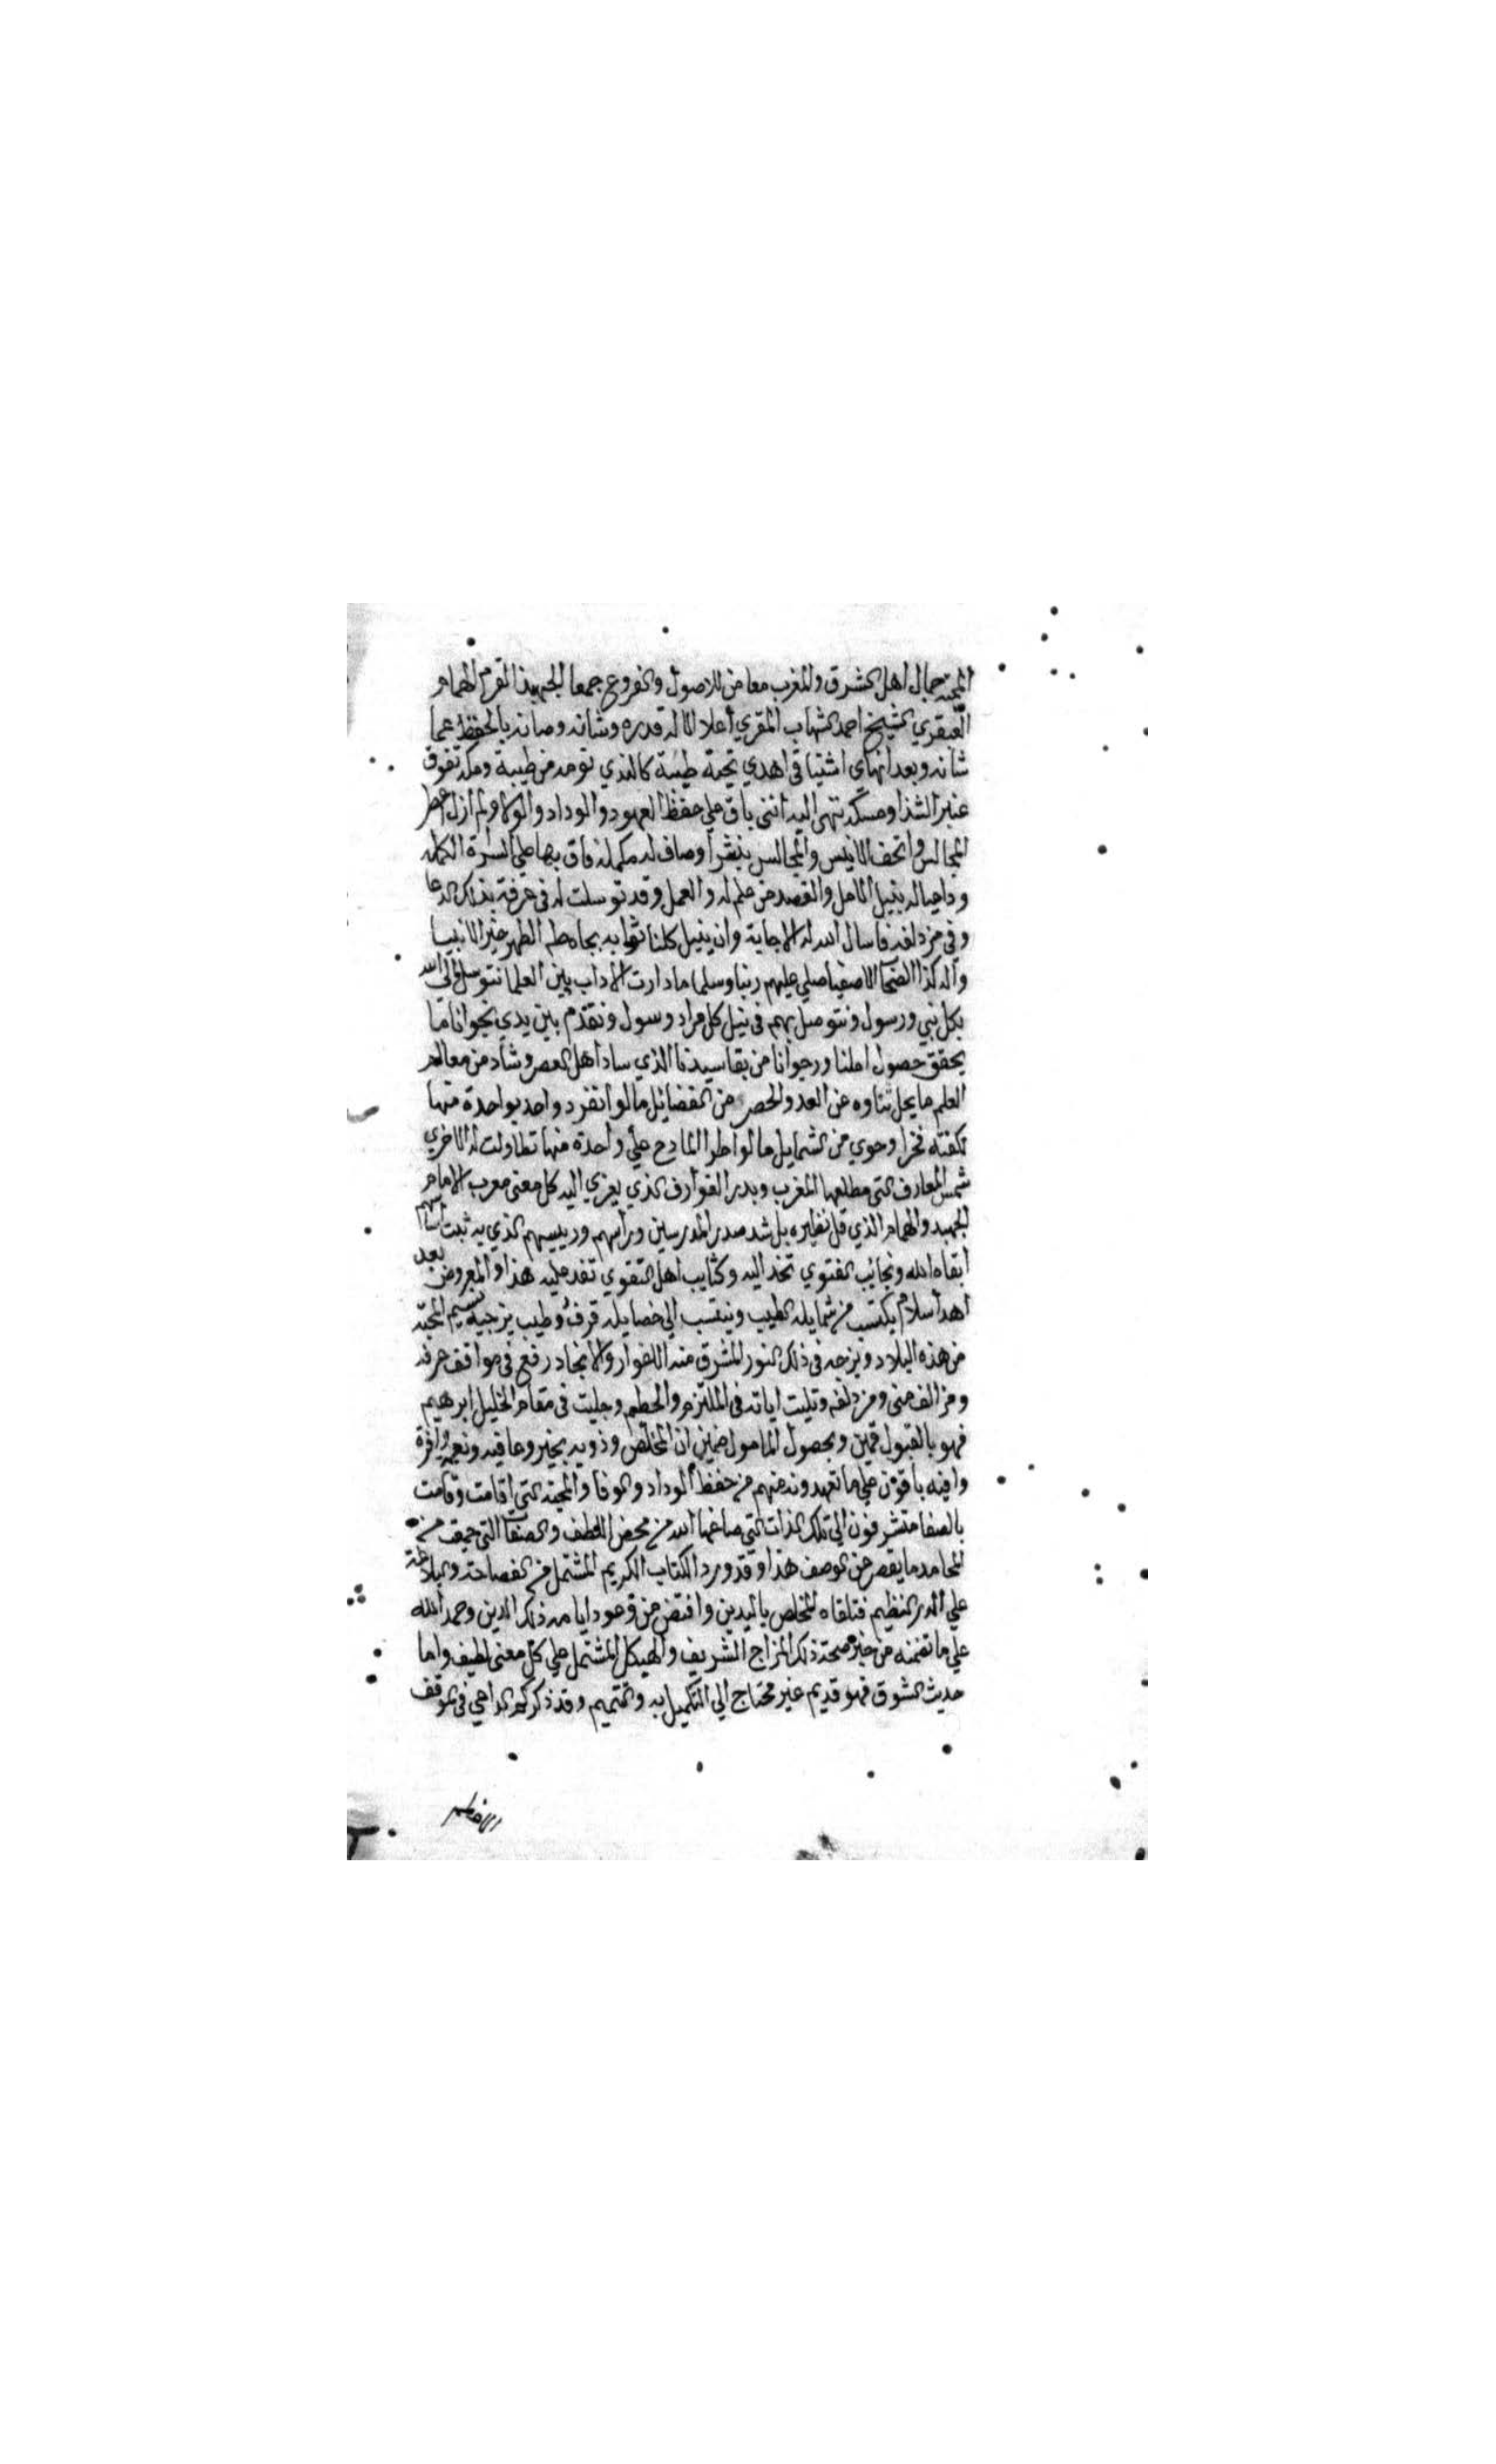 المحبة جمال اهل الشرق والمغرب معا من للاصول والفروع جمعا الجهبذ القرم الهمام
العبقري الشيخ احمد الشهاب المقري أعلا الاله قدره وشانه وصانه بالحفظ عما
شانه وبعد انهاي اشتياقي اهدي تحية طيبة كالندي توم من طيبة ومكة تفوق
عنبر الشذا ومسكه تنهى اليه انني باق علي حفظ العهود والوداد والولا ولم أزل اعطر
المجالس واتحف الانيس والمجالس بنشر أوصاف له مكمله فاق بها علي السراة الكمله
وداعيا له بنيل الامل والقصد من علم له والعمل وقد توسلت له في عرفة بذلك الدعا
وفي مزدلفه فاسال الله له الاجابة وان ينيل كلنا ثوابه بجاه طه الطهر خير الانبيا
وآله كذا الصحاب الاصفيا صلي عليهم ربنا وسلما ما دارت الآداب بين العلما نتوسل الي الله
بكل نبي ورسول ونتوصل بهم في نيل كل مراد وسول ونقدم بين يدي نجوانا ما
يحقق حصول املنا ورجوانا من بقا سيدنا الذي ساد أهل العصر وشاد من معالم
العلم ما يجل ثناوه عن العد والحصر من الفضائل ما لو انفرد واحد بواحدة منها
لكفته فخرا وحوي من الشمايل ما لو اطرا المادح علي واحدة منها تطاولت له الاخري
شمس المعارف التي مطلعها المغرب وبدر العوارف الذي يعزي اليه كل معنى مغرب الامام
الجهبد والهمام الذي قل نظيره بل شد صدر المدرسين وراسهم ورييسهم الذي به ثبت اساسهم
ابقاه الله ونجائب الفتوي تخد اليه وكتايب اهل التقوي تفد عليه هذا والمعروض بعد
اهدا سلام يكتسب من شمايله الطيب وينتسب الي خصايله عرف وطيب يزجيه نسيم المحبة
من هذه البلاد ويزجه في ذلك النور المشرق منه الاغوار والانجاد رفع في مواقف عرفه
ومزالف منى ومزدلفه وتليت اياته في الملتزم والحطيم وجليت في مقام الخليل ابرهيم
فهو بالقبول قمين وبحصول المامول ضمين ان المخلص وذويه بخير وعافيه ونعم وافرة
وافيه باقون علي ما تعهدونه منهم من حفظ الوداد والوفا والمحبة التي اقامت وقامت
بالصفا متشرفون الي تلك الذات التي صاغها الله من محض اللطف والصفات التي جمعت من
المحامد ما يقصر عن الوصف هذا وقد ورد الكتاب الكريم المشتمل من الفصاحة والبلاغة
علي الدر النظيم فتلقاه المخلص باليدين واقتضى من وعود ايامه ذلك الدين وحمد الله
علي ما تضمنه من خبر صحة ذلك المزاج الشريف والهيكل المشتمل علي كل معنى لطيف واما
حديث الشوق فهو قديم غير محتاج الي التكميل به والتتميم وقد ذكركم الداعي في الموقف
الاعظم